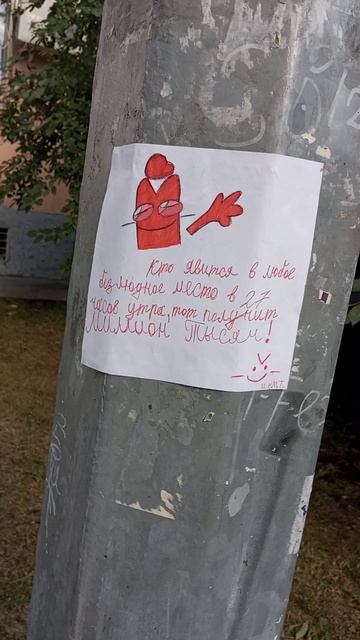 Кто явится в любое
безлюдное место в 27
часов утра, тот получит
Миллион Тысяч!